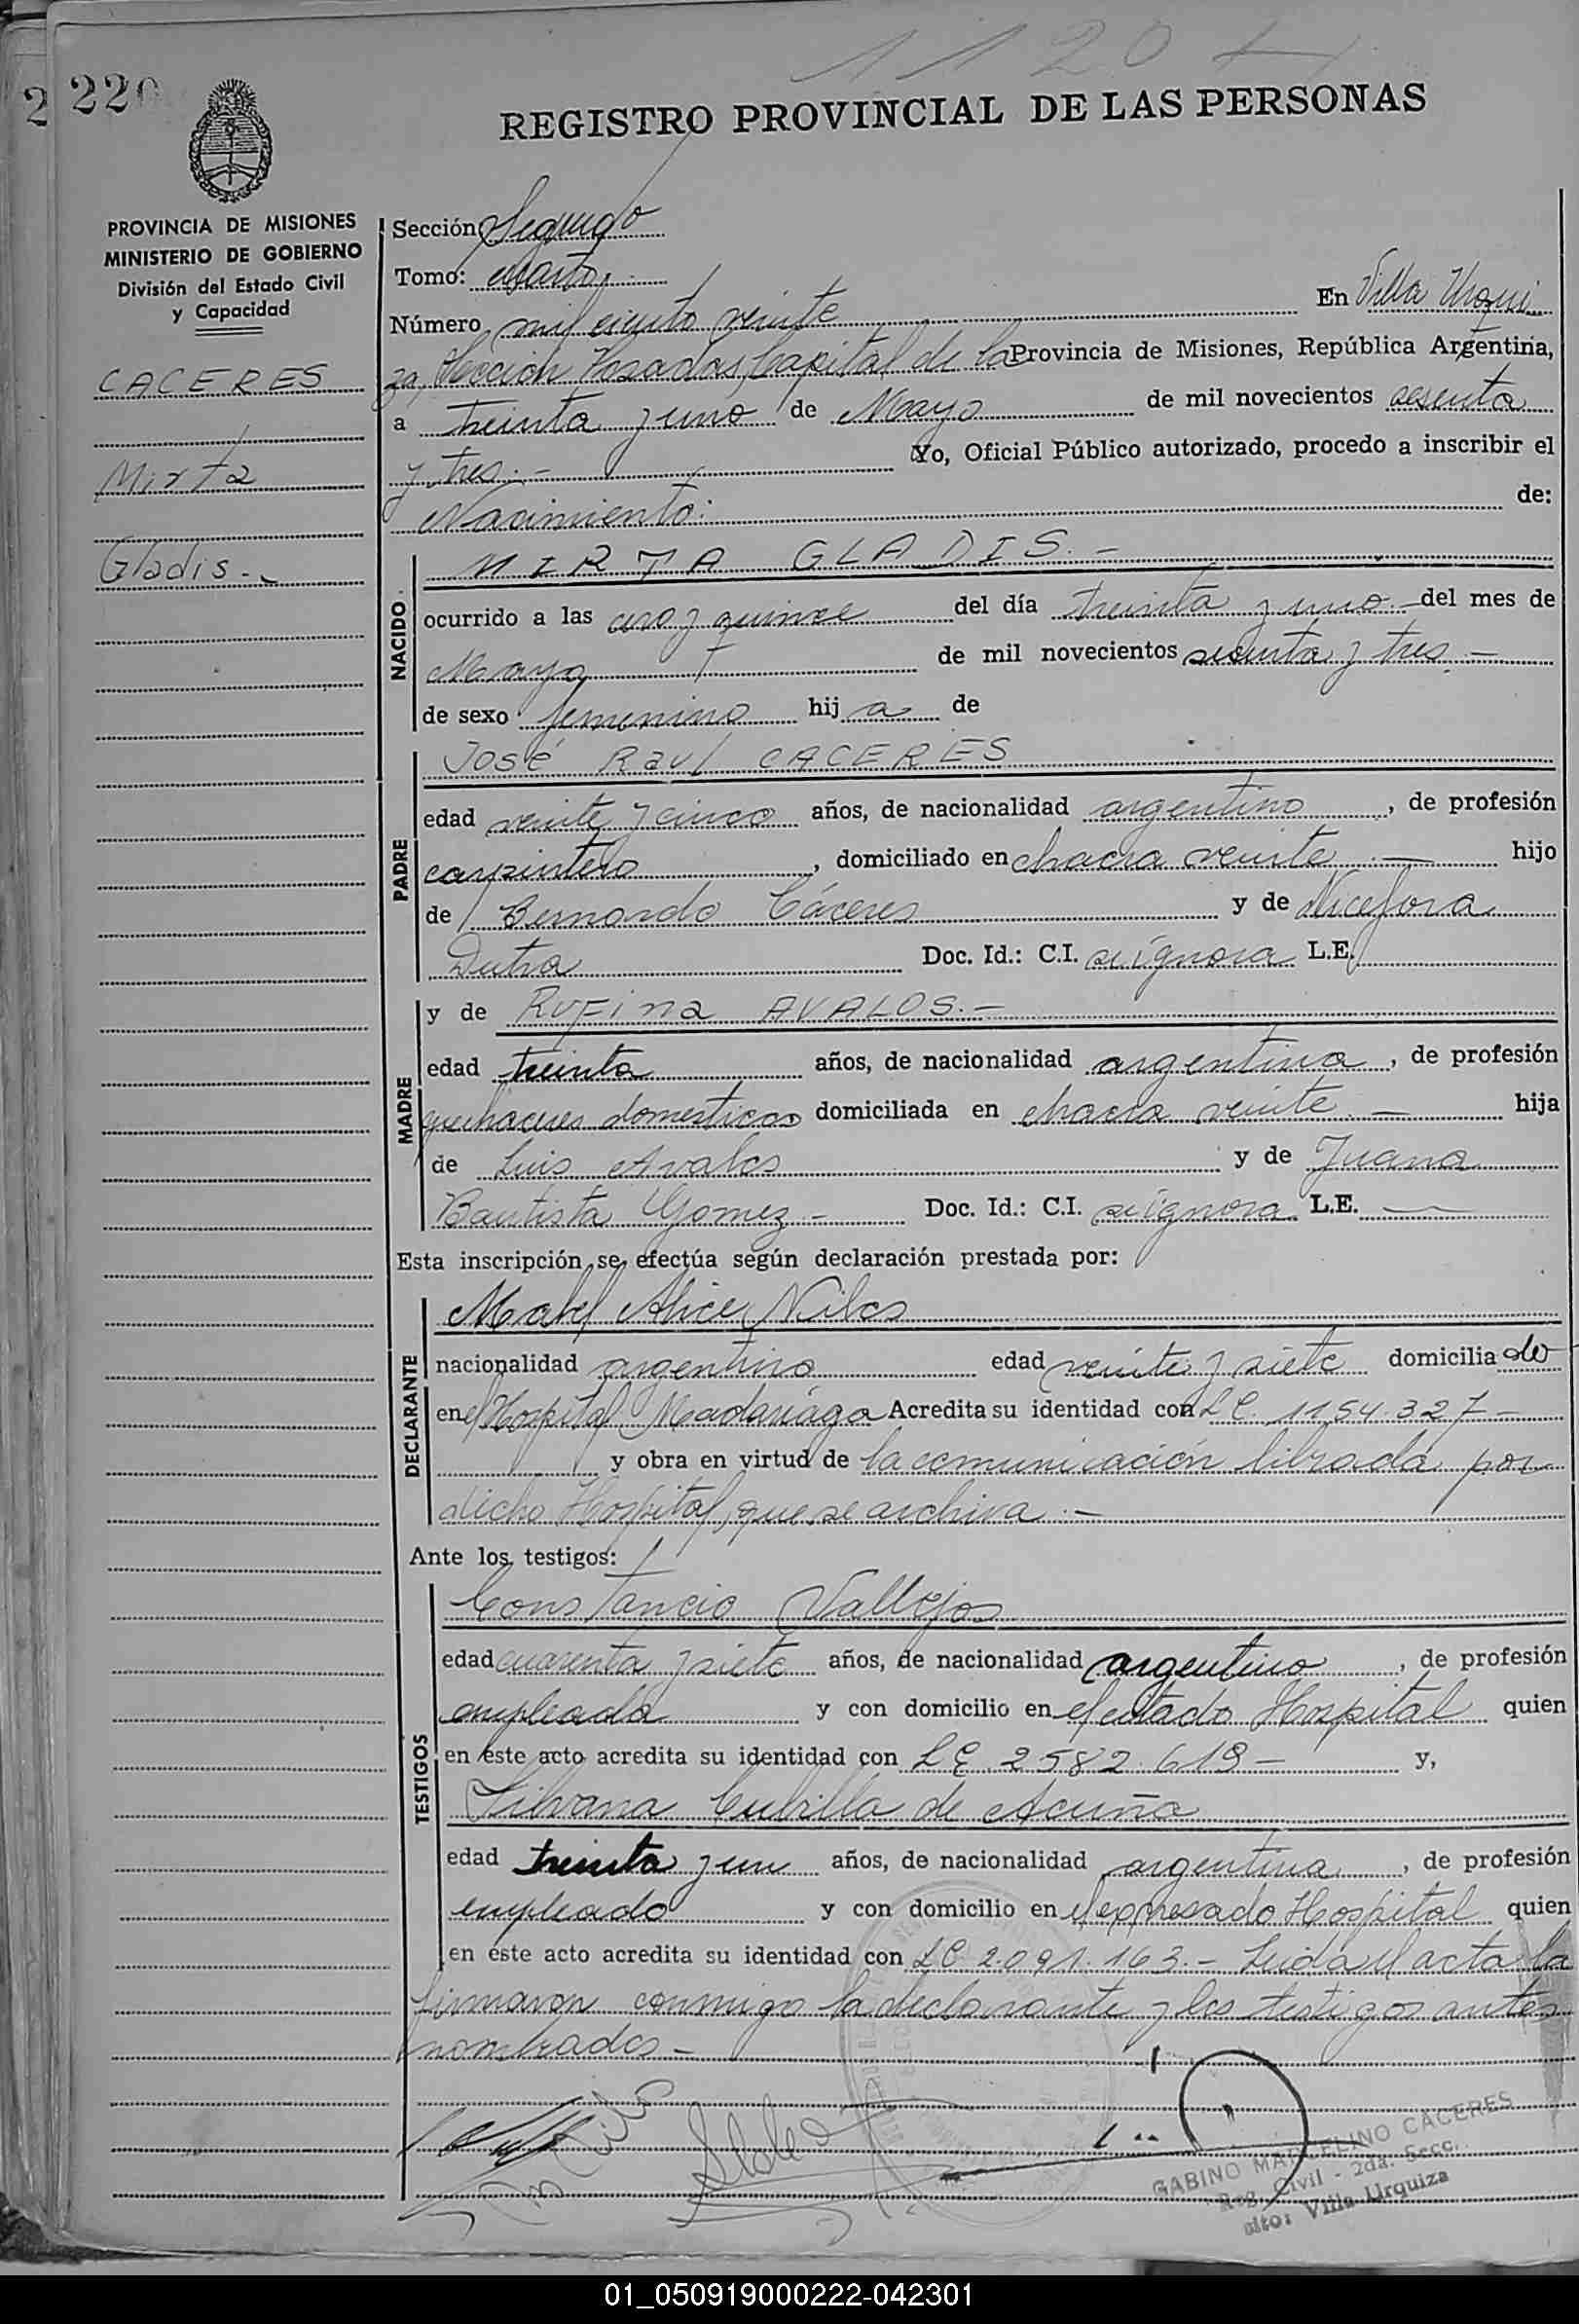 1120
220
REGISTRO PROVINCIAL DE LAS PERSONAS
PROVINCIA DE MISIONES
MINISTERIO DE GOBIERNO
División del Estado Civil
y Capacidad
CACERES
Mirta
Gladis.-
Sección Segunda
Tomo: cuarto
Número mil ciento veinte En Villa Urqui
za, Sección Posadas, Capital de la Provincia de Misiones, República Argentina,
a treinta y uno de Mayo de mil novecientos sesenta
y tres.- Yo, Oficial Público autorizado, procedo a inscribir el
Nacimiento: de:
NACIDO
MIRTA GLADIS.-
ocurrido a las cero y quince del día treinta y uno.- del mes de
Mayo de mil novecientos sesenta y tres.-
de sexo femenino hija de
PADRE
José Raul CACERES
edad veinte y cinco años, de nacionalidad argentino, de profesión
carpintero, domiciliado en chacra veinte.- hijo
de Bernardo Cáceres y de Nicefora
Dutra Doc. Id.: C.I. se ignora L.E.
MADRE
y de Rufina AVALOS.-
edad treinta años, de nacionalidad argentina, de profesión
quehaceres domesticos domiciliada en chacra veinte.- hija
de Luis Avalos y de Juana
Bautista Gomez - Doc. Id.: C.I. se ignora L.E. -
Esta inscripción se efectúa según declaración prestada por:
DECLARANTE
Mabel Alice Nilos
nacionalidad argentina edad veinte y siete domiciliada
en el Hospital Madariaga Acredita su identidad con L C. 1154.327-
y obra en virtud de la comunicación librada por
dicho Hospital, que se archiva.-
Ante los testigos:
TESTIGOS
Constancio Vallejos
edad cuarenta y siete años, de nacionalidad argentino, de profesión
empleado y con domicilio en el citado Hospital quien
en este acto acredita su identidad con L E. 2582.619- y,
Silvana Cubilla de Acuña
edad treinta y un años, de nacionalidad argentina, de profesión
empleado y con domicilio en el expresado Hospital quien
en este acto acredita su identidad con LC 2.091.163.- Leida el acta la
firmaron conmigo la declarante y los testigos antes
nombrados-
GABINO MARCELINO CACERES
Reg. Civil - 2da. Secc.
Villa Urquiza
01_050919000222-042301